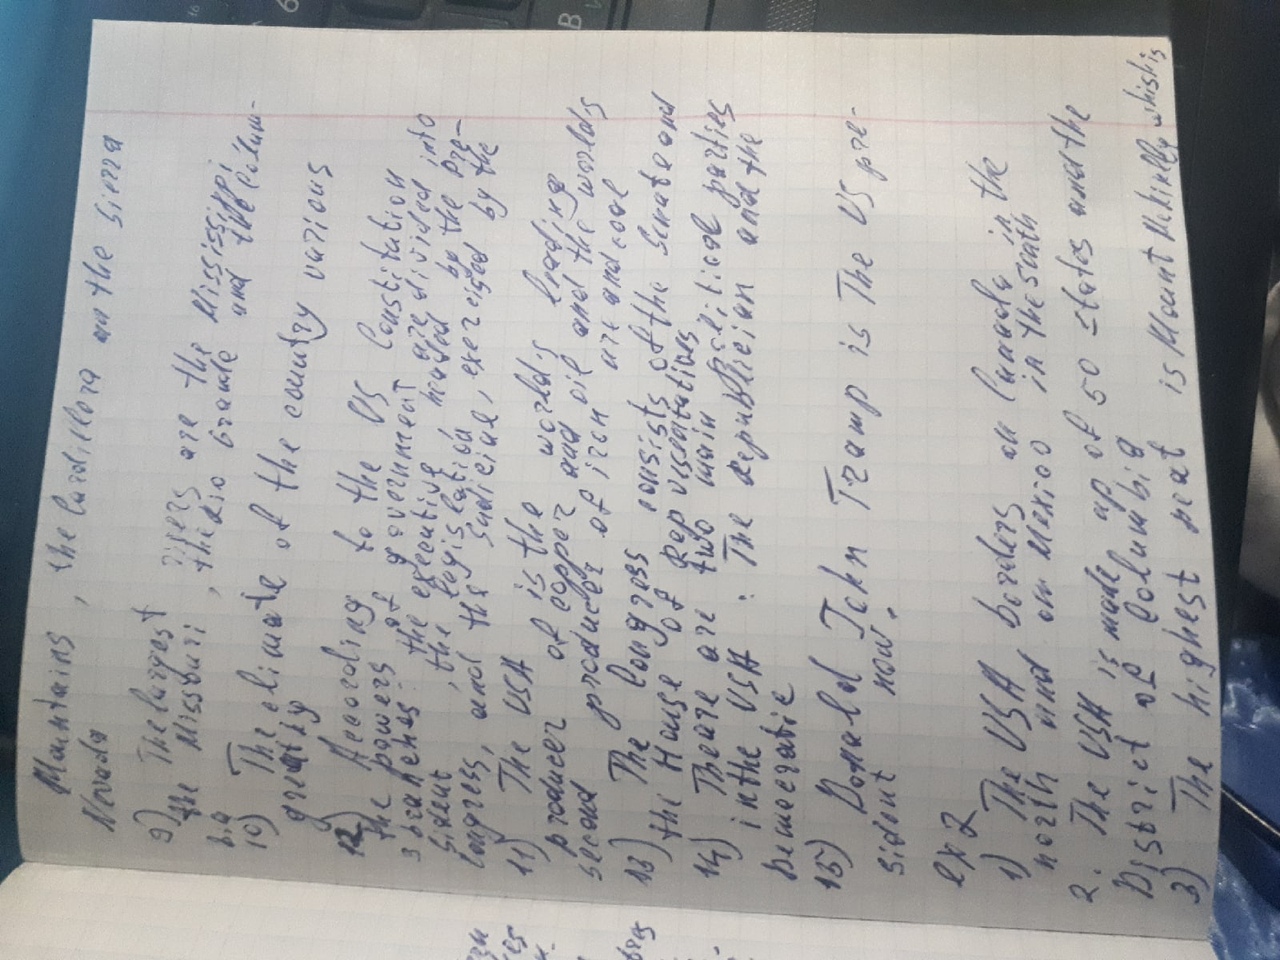 Mauntains , the Cardillera an the Sierra
Novada
9) The largest rivers are the Mississippi
the Missouri , the Rio Grande and the Colum-
bia
10) The climate of the country various
greatly
12) According to the US Constitution
the powers of government are divided into
3 branches: the executive, headed by the pre-
sident , the legislation, exercised by the
Congres, and the judicial,
11) The USA is the world's leading
producer of copper and oil and the worlds
second producer of iron ore and coal
13) The Congress consists of the Senate and
the House of Representatives
14) Theare are two main political parties
in the USA : The Republician and the
Democratic
15) Donald John Tramp is The US pre-
sident now.
ex 2
1) The USA borders on Canada in the
north and on Mexico in the south
2. The USA is made up of 50 states and the
District of Columbia
3) The highest peat is Mount McKinly whish is